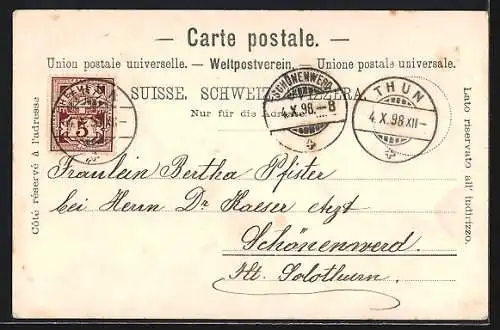 — Carte postale. —
Union postale universelle. — Weltpostverein. — Unione postale universale.
SUISSE. SCHWEIZ. SVIZZERA.
Nur für die Adresse.
Côté réservé à l'adresse
Lato riservato all' indirizzo.
5
SCHÖNENWERD
4.X.98.–8
THUN
4.X.98 XII–
Fräulein Bertha Pfister
bei Herrn Dr Kaeser Arzt
Schönenwerd
Kt. Solothurn.